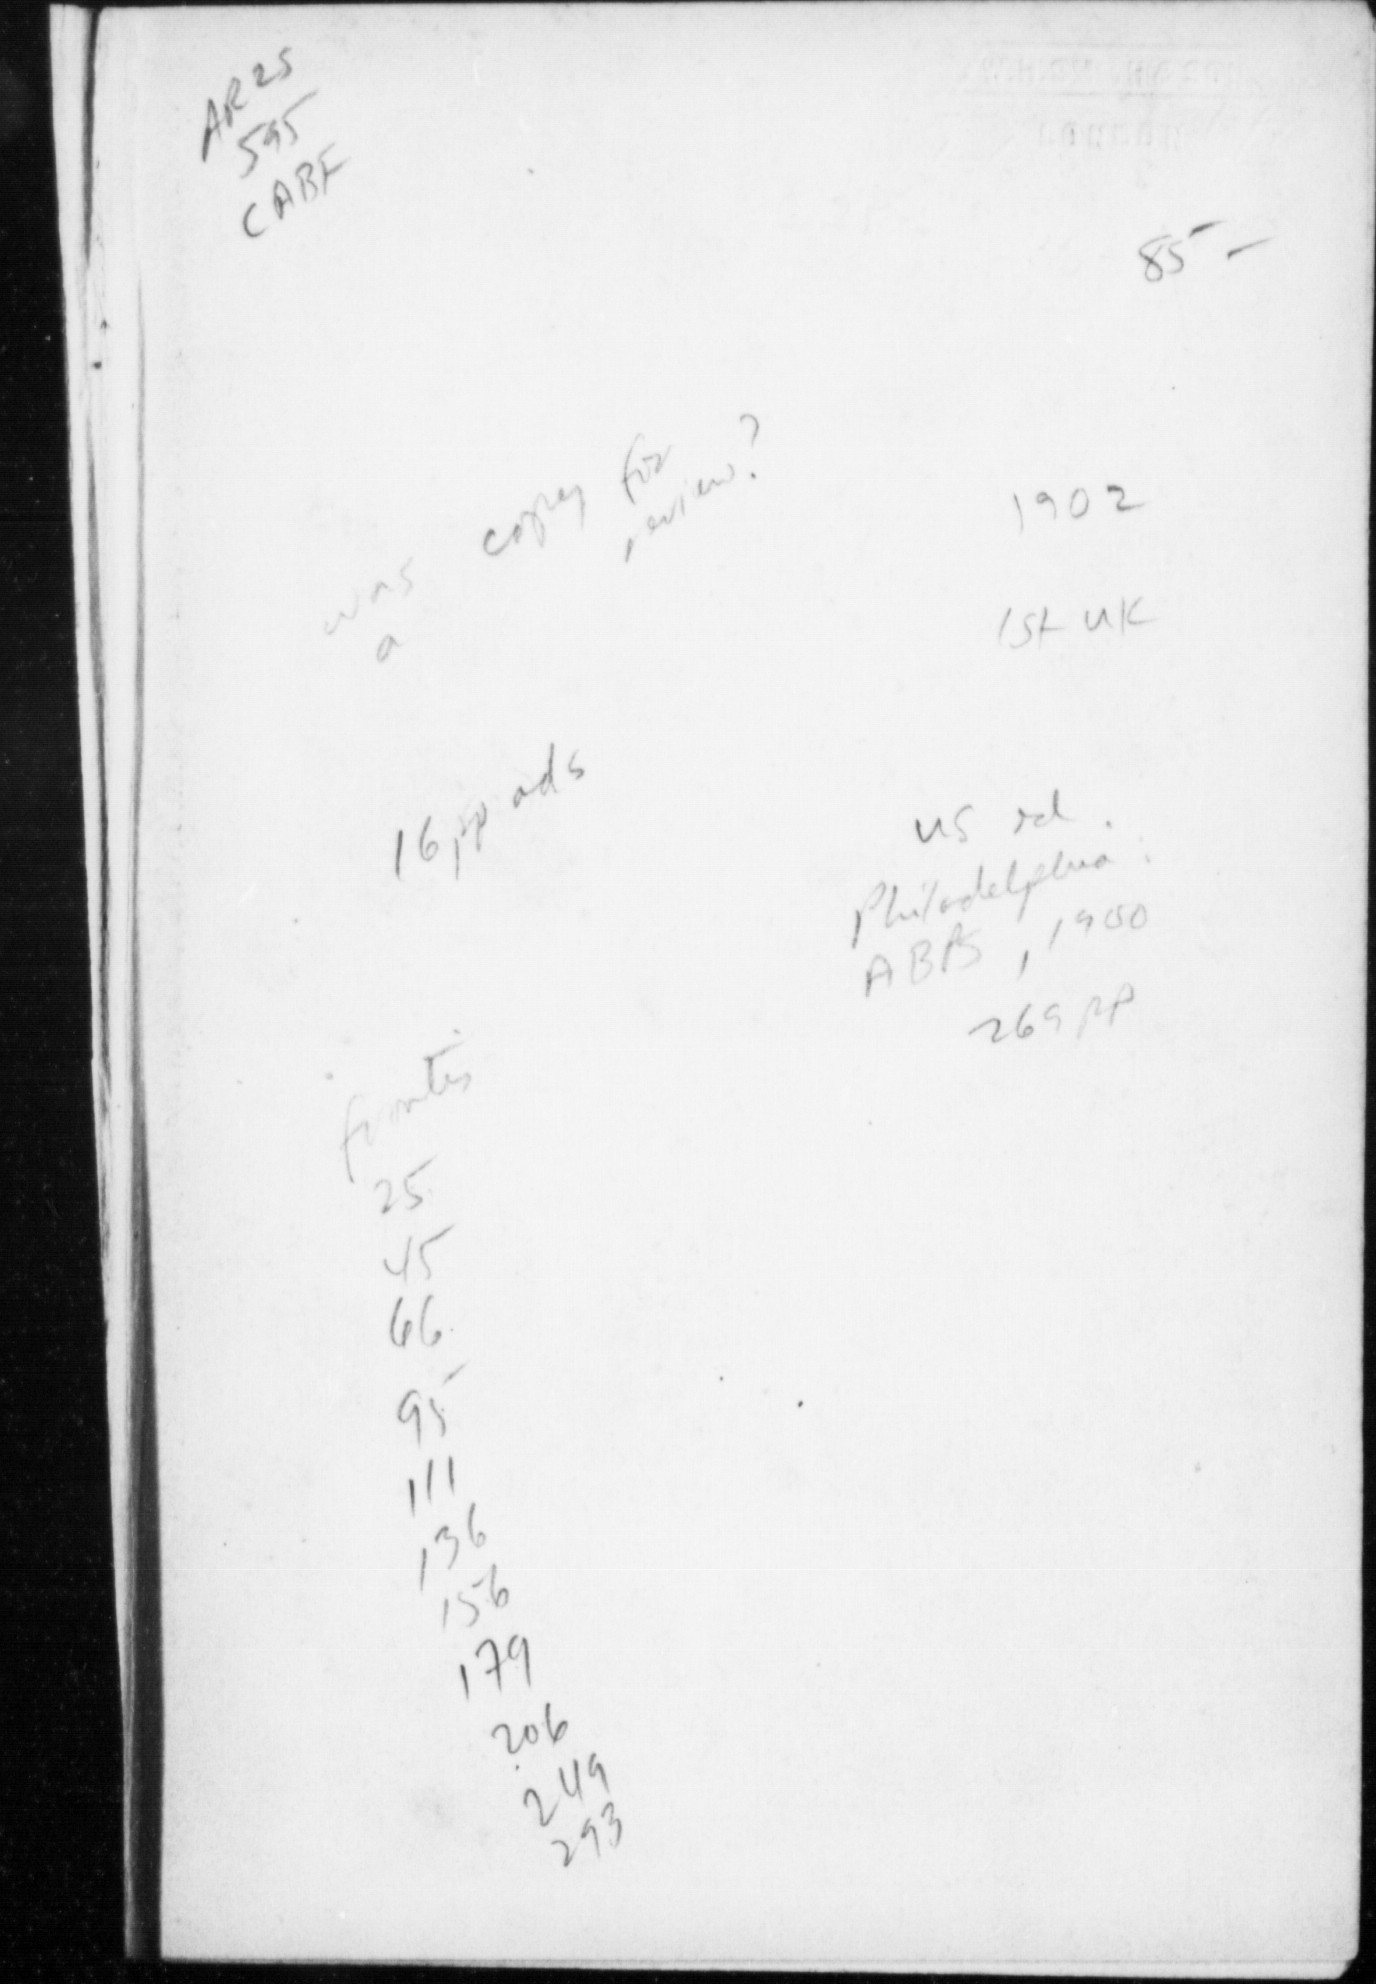 AR25
595
CABE
85 –
was a copy for review?
1902
1st UK
16 pp ads
US ed.
Philadelphia:
ABPS, 1900
269 pp
frontis
25
45
66
95
111
136
156
179
206
249
293